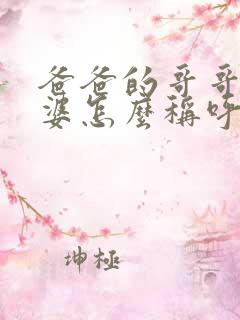 爸爸的哥哥
婆怎麼稱呼
坤極